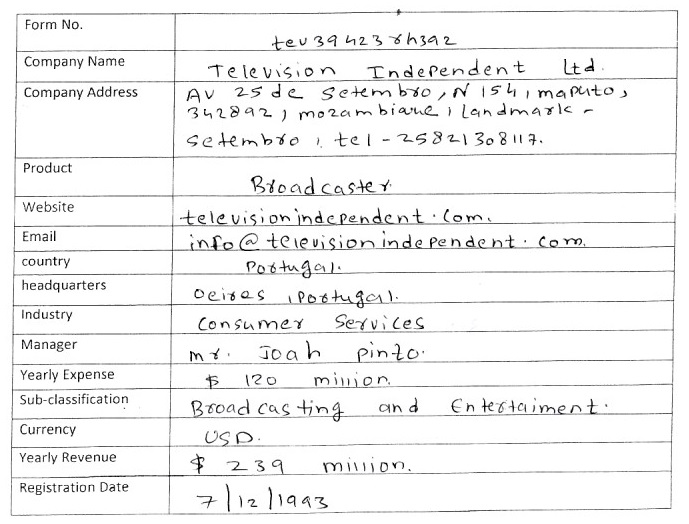 Form No. tev39423rh392
Company Name Television Independent Ltd.
Company Address Av 25 de Setembro, N 154, maputo,
342892, mozambique, Landmark -
Setembro, tel - 25821308117.
Product Broadcaster.
Website televisionindependent.com.
Email info@televisionindependent.com.
country Portugal.
headquarters Oeiras, Portugal.
Industry Consumer Services
Manager mr. Joah pinto.
Yearly Expense $ 120 million.
Sub-classification Broadcasting and Entertaiment.
Currency USD.
Yearly Revenue $ 239 million.
Registration Date 7/12/1993